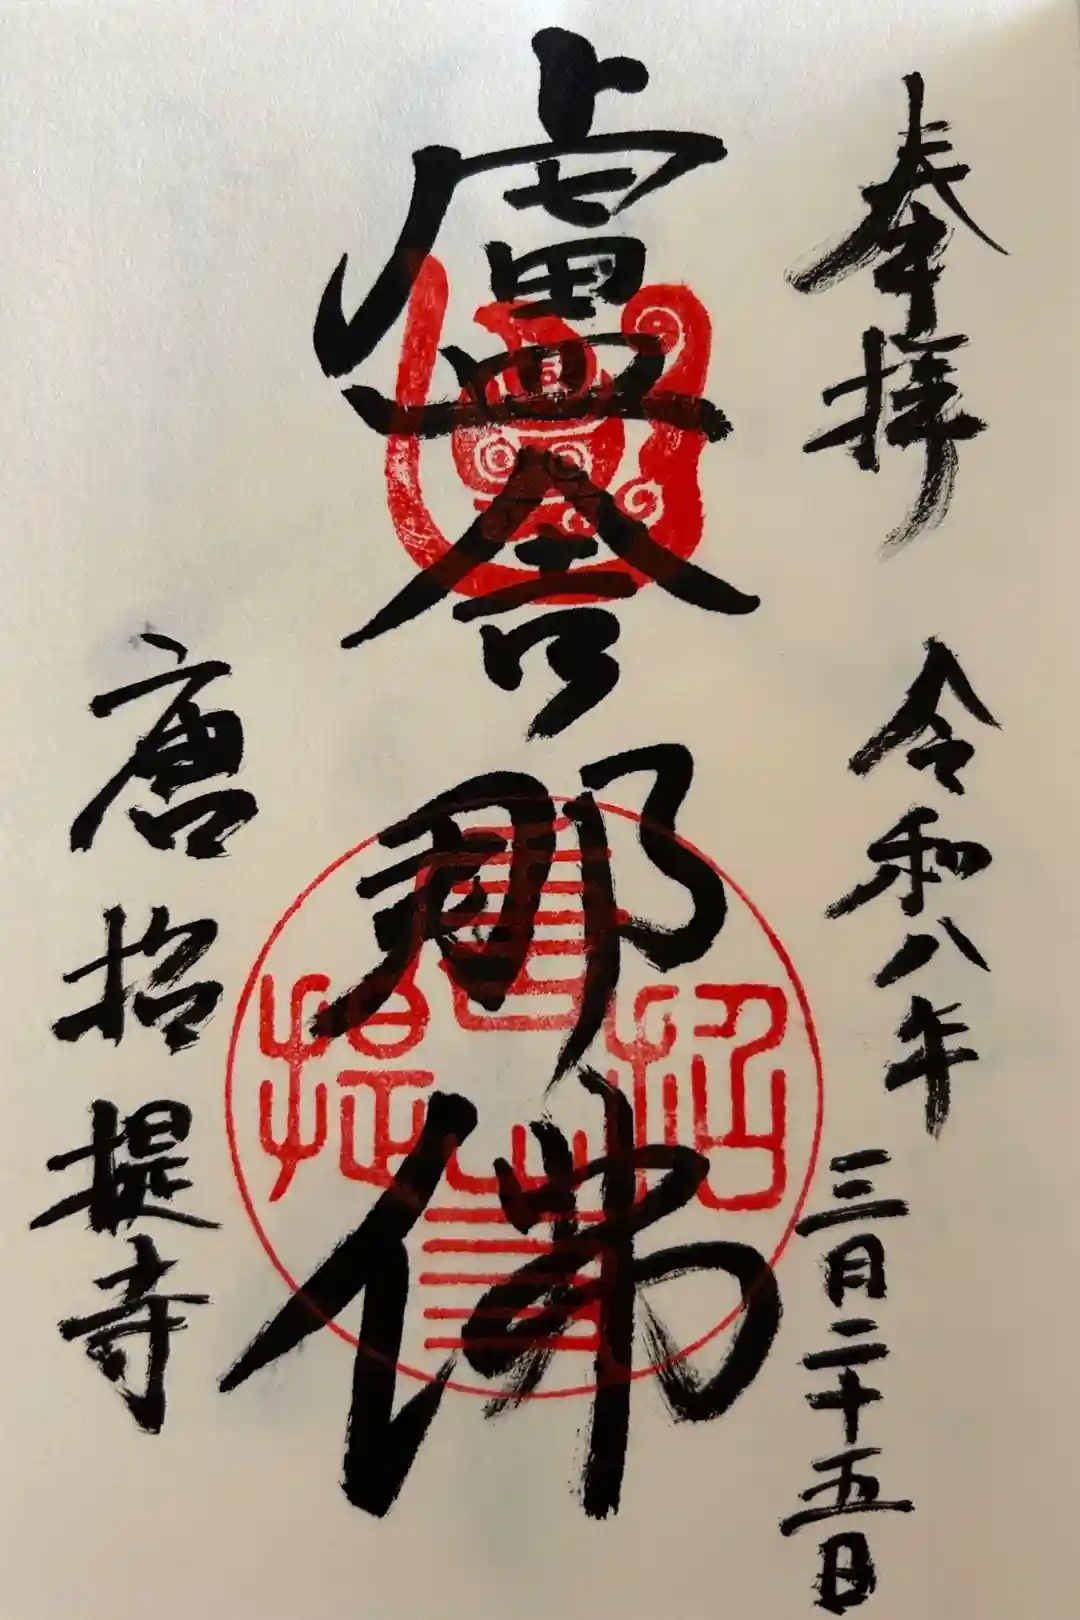 奉拝 令和八年 三月二十五日
盧舎那佛
唐招提寺